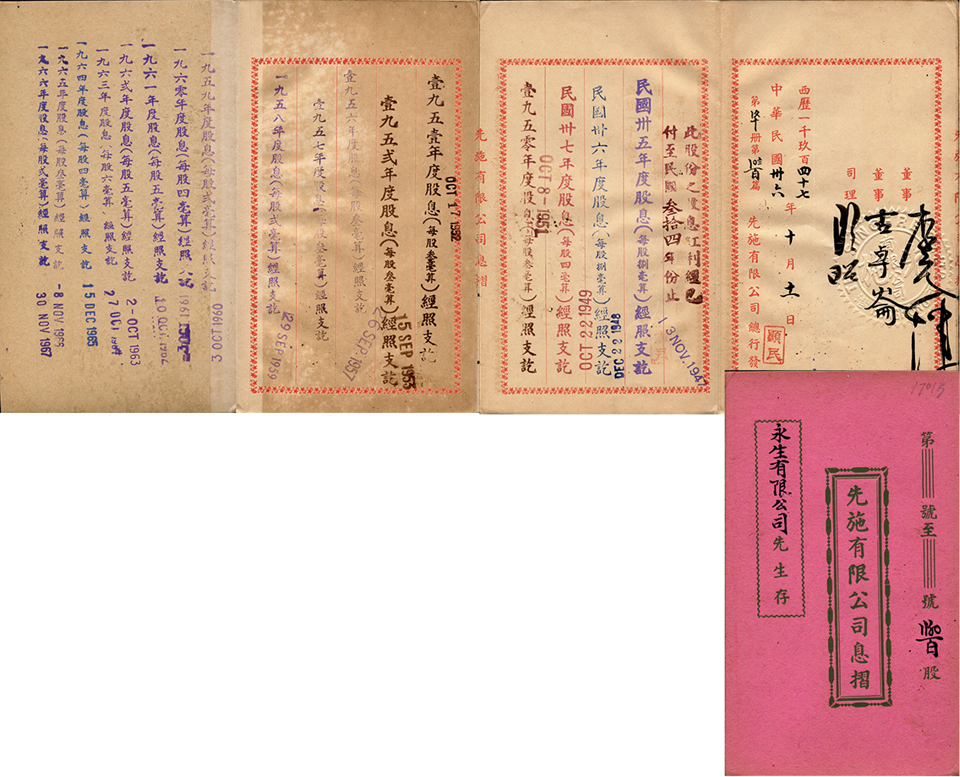 董事
董事
司理
西歷一千玖百四十七年十月十一日
中華民國卅六
先施有限公司總行發
顯民
此股份之股息紅利經已
付至民國叁拾四年份止
民國卅五年度股息(每股捌毫算)經照支訖
3 NOV. 1947
民國卅六年度股息(每股捌毫算)經照支訖
DEC 22 1948
民國卅七年度股息(每股四毫算)經照支訖
OCT 22 1949
壹九五零年度股息(每股叁毫算)經照支訖
OCT 8-1951
先施有限公司息摺
壹九五壹年度股息(每股叁毫算)經照支訖
OCT 17 1952
壹九五弍年度股息(每股叁毫算)經照支訖
15 SEP 1953
壹九五六年度股息(每股叁毫算)經照支訖
26 SEP 1957
壹九五七年度股息(每股叁毫算)經照支訖
一九五八年度股息(每股弍毫算)經照支訖
29 SEP 1959
一九五九年度股息(每股弍毫算)經照支訖
3 OCT 1960
一九六0年度股息(每股四毫算)經照支訖
一九六一年度股息(每股五毫算)經照支訖
一九六弍年度股息(每股五毫算)經照支訖
2-OCT 1963
一九六三年度股息(每股六毫算)經照支訖
一九六四年度股息(每股四毫算)經照支訖
15 DEC 1965
一九六五年度股息(每股叁毫算)經照支訖
一九六六年度股息(每股弍毫算)經照支訖
30 NOV 1967
17013
第 號至 號 股
先施有限公司息摺
永生有限公司先生存